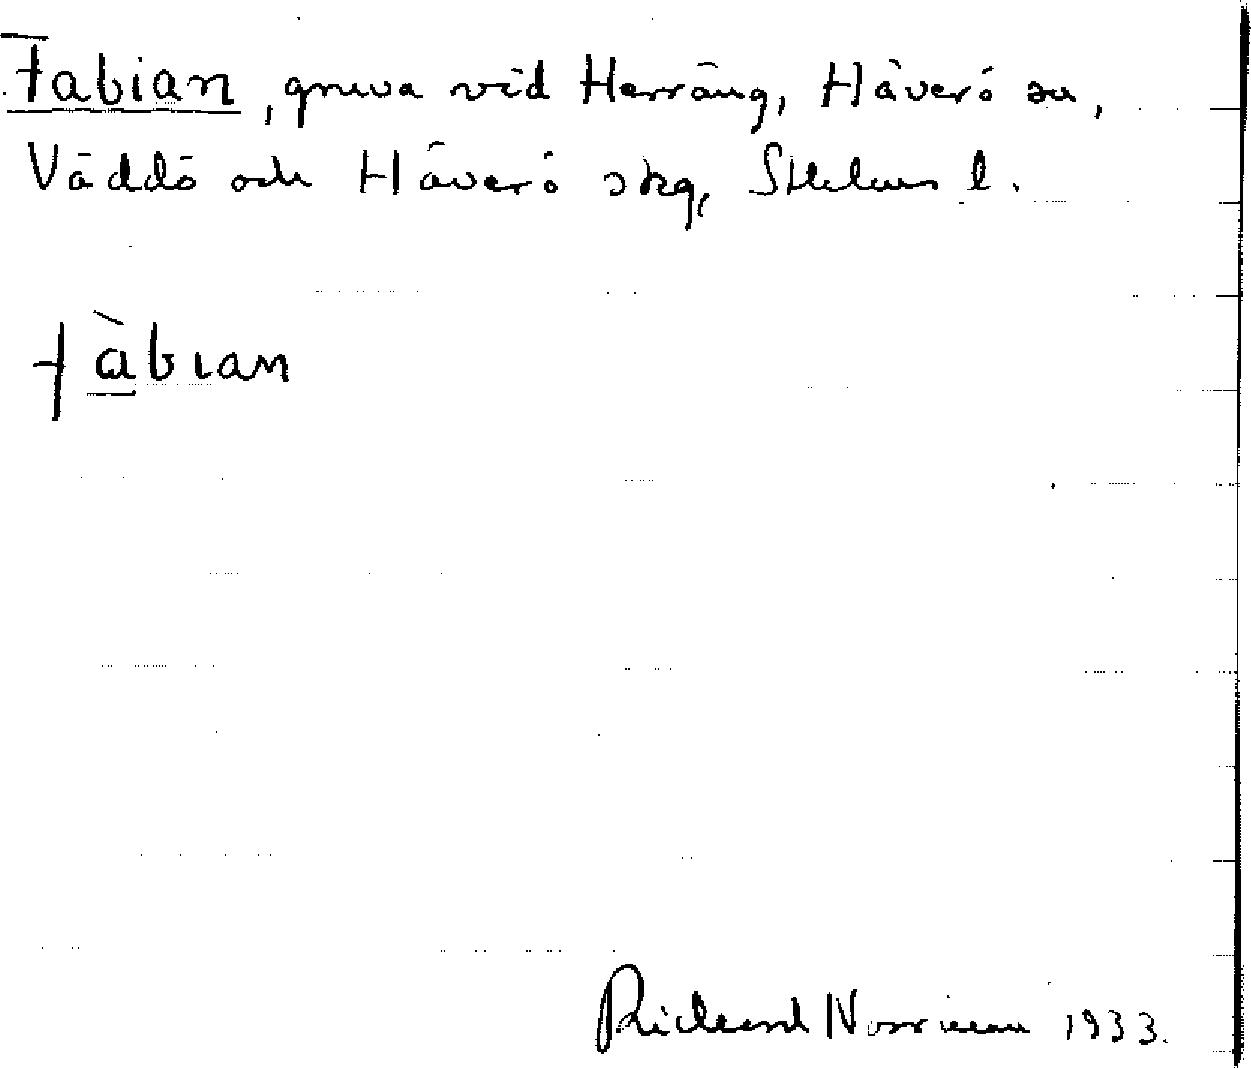 Fabian, gruva vid Herräng, Häverö sn,
Väddö och Häverö skg, Sthlms l.
fàbian
Rickard Norrman 1933.